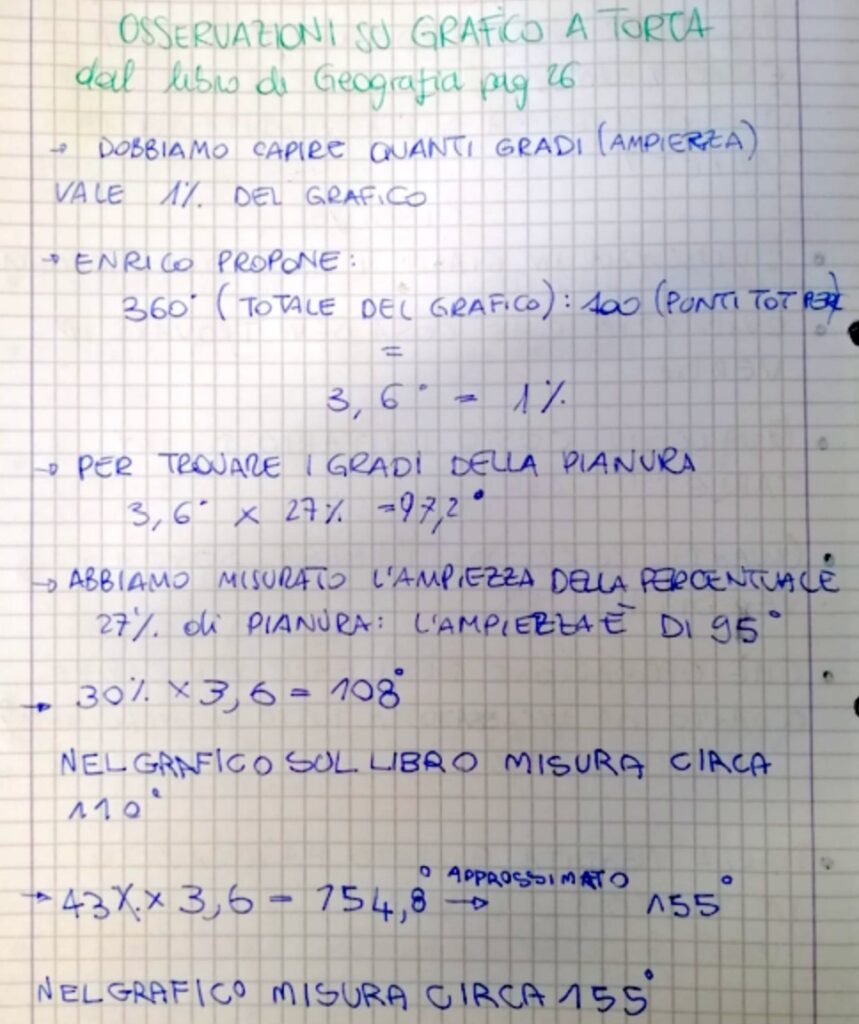 OSSERVAZIONI SU GRAFICO A TORTA
dal libro di Geografia pag 26
→ DOBBIAMO CAPIRE QUANTI GRADI (AMPIEZZA)
VALE 1% DEL GRAFICO
→ ENRICO PROPONE:
360° (TOTALE DEL GRAFICO): 100 (PUNTI TOT
=
3,6° = 1%
→ PER TROVARE I GRADI DELLA PIANURA
3,6° × 27% = 97,2°
→ ABBIAMO MISURATO L'AMPIEZZA DELLA PERCENTUALE
27% di PIANURA: L'AMPIEZZA È DI 95°
→ 30% × 3,6 = 108°
NEL GRAFICO SUL LIBRO MISURA CIRCA
110°
→ 43% × 3,6 = 154,8° APPROSSIMATO → 155°
NEL GRAFICO MISURA CIRCA 155°